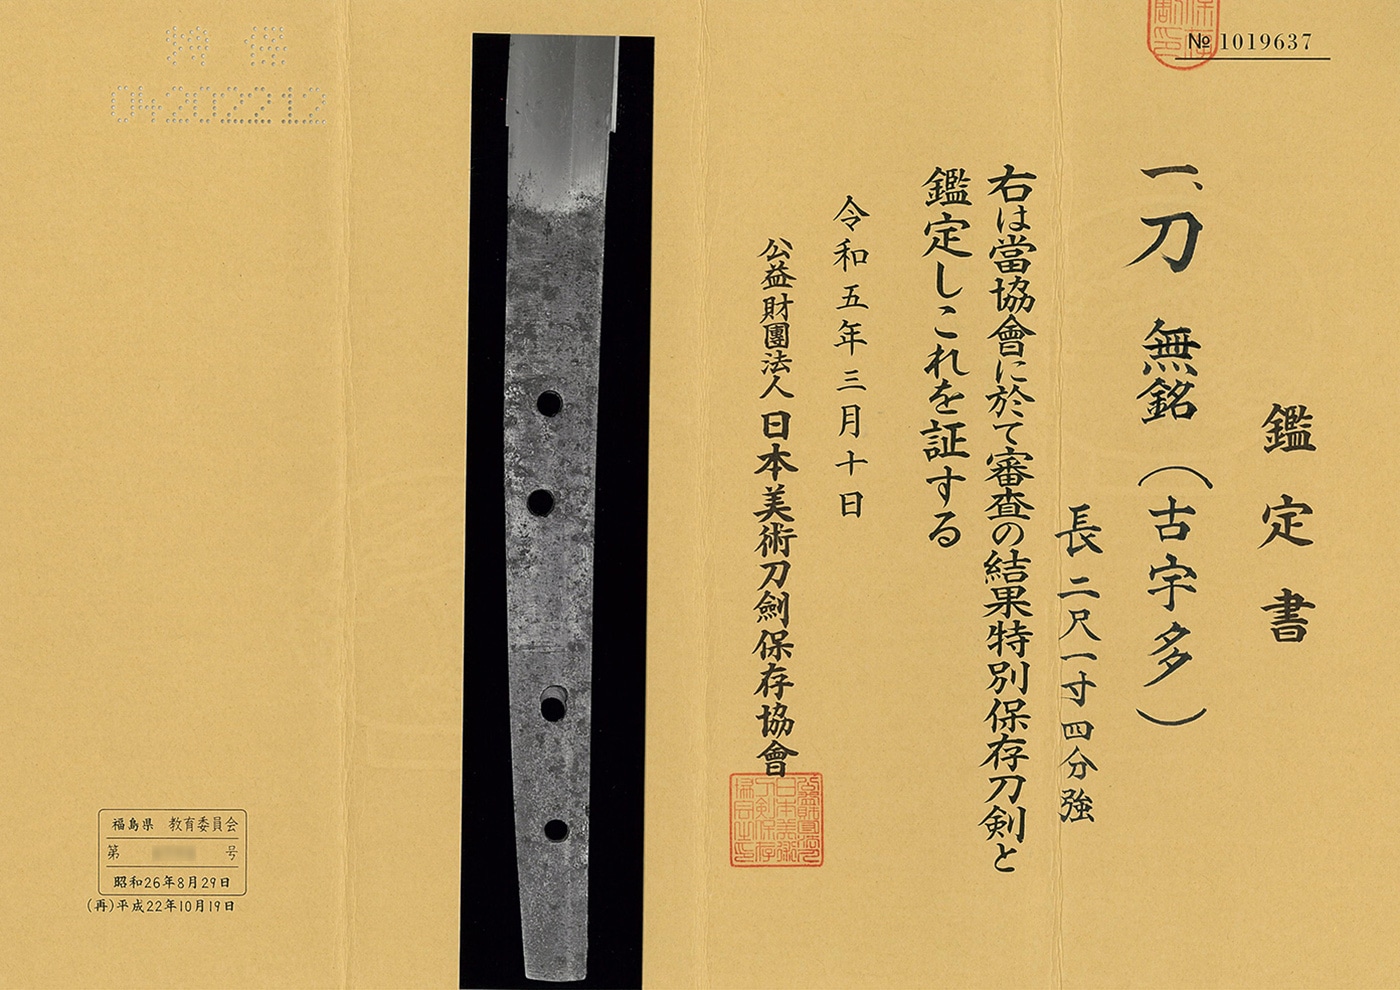 № 1019637
鑑定書
一、刀 無銘(古宇多)
長二尺一寸四分強
右は當協會に於て審査の結果特別保存刀剣と
鑑定しこれを証する
令和五年三月十日
公益財團法人 日本美術刀劍保存協會
特保
04202212
福島県 教育委員会
第 号
昭和26年8月29日
(再)平成22年10月19日